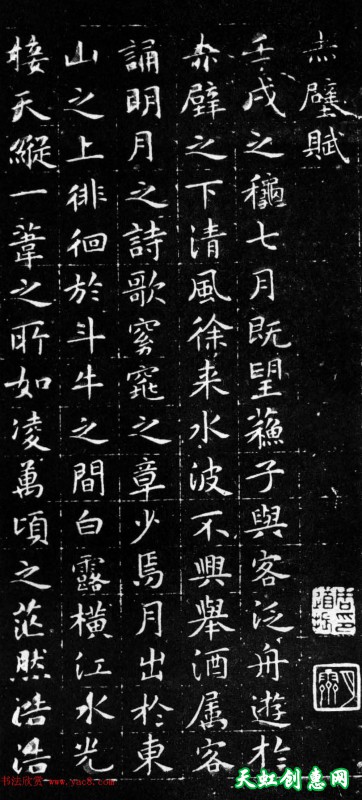 赤壁賦
壬戌之龝七月既望蘓子與客泛舟遊於
赤壁之下清風徐来水波不興舉酒属客
誦明月之詩歌窈窕之章少焉月出於東
山之上徘徊於斗牛之間白露橫江水光
接天縱一葦之所如凌萬頃之茫然浩浩
书法欣赏 www.yac8.com
天虹创意网